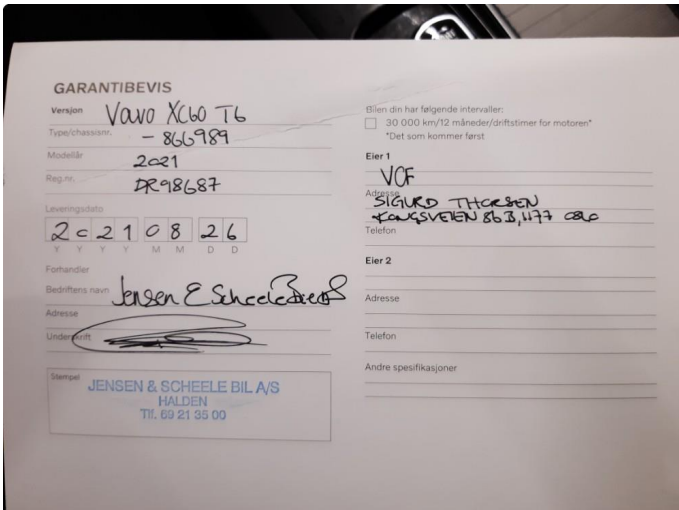 GARANTIBEVIS
Versjon Volvo XC60 T6
Type/chassisnr. - 866989
Modellår 2021
Reg.nr. DR98687
Leveringsdato
2021 08 26
Y Y Y Y M M D D
Forhandler
Bedriftens navn Jensen & Scheele Bil
Adresse
Underskrift
Stempel
JENSEN & SCHEELE BIL A/S
HALDEN
Tlf. 69 21 35 00
Bilen din har følgende intervaller:
30 000 km/12 måneder/driftstimer for motoren*
*Det som kommer først
Eier 1
VCF
Adresse SIGURD THORSEN
KONGSVEIEN 86 B, 1177 Oslo
Telefon
Eier 2
Adresse
Telefon
Andre spesifikasjoner